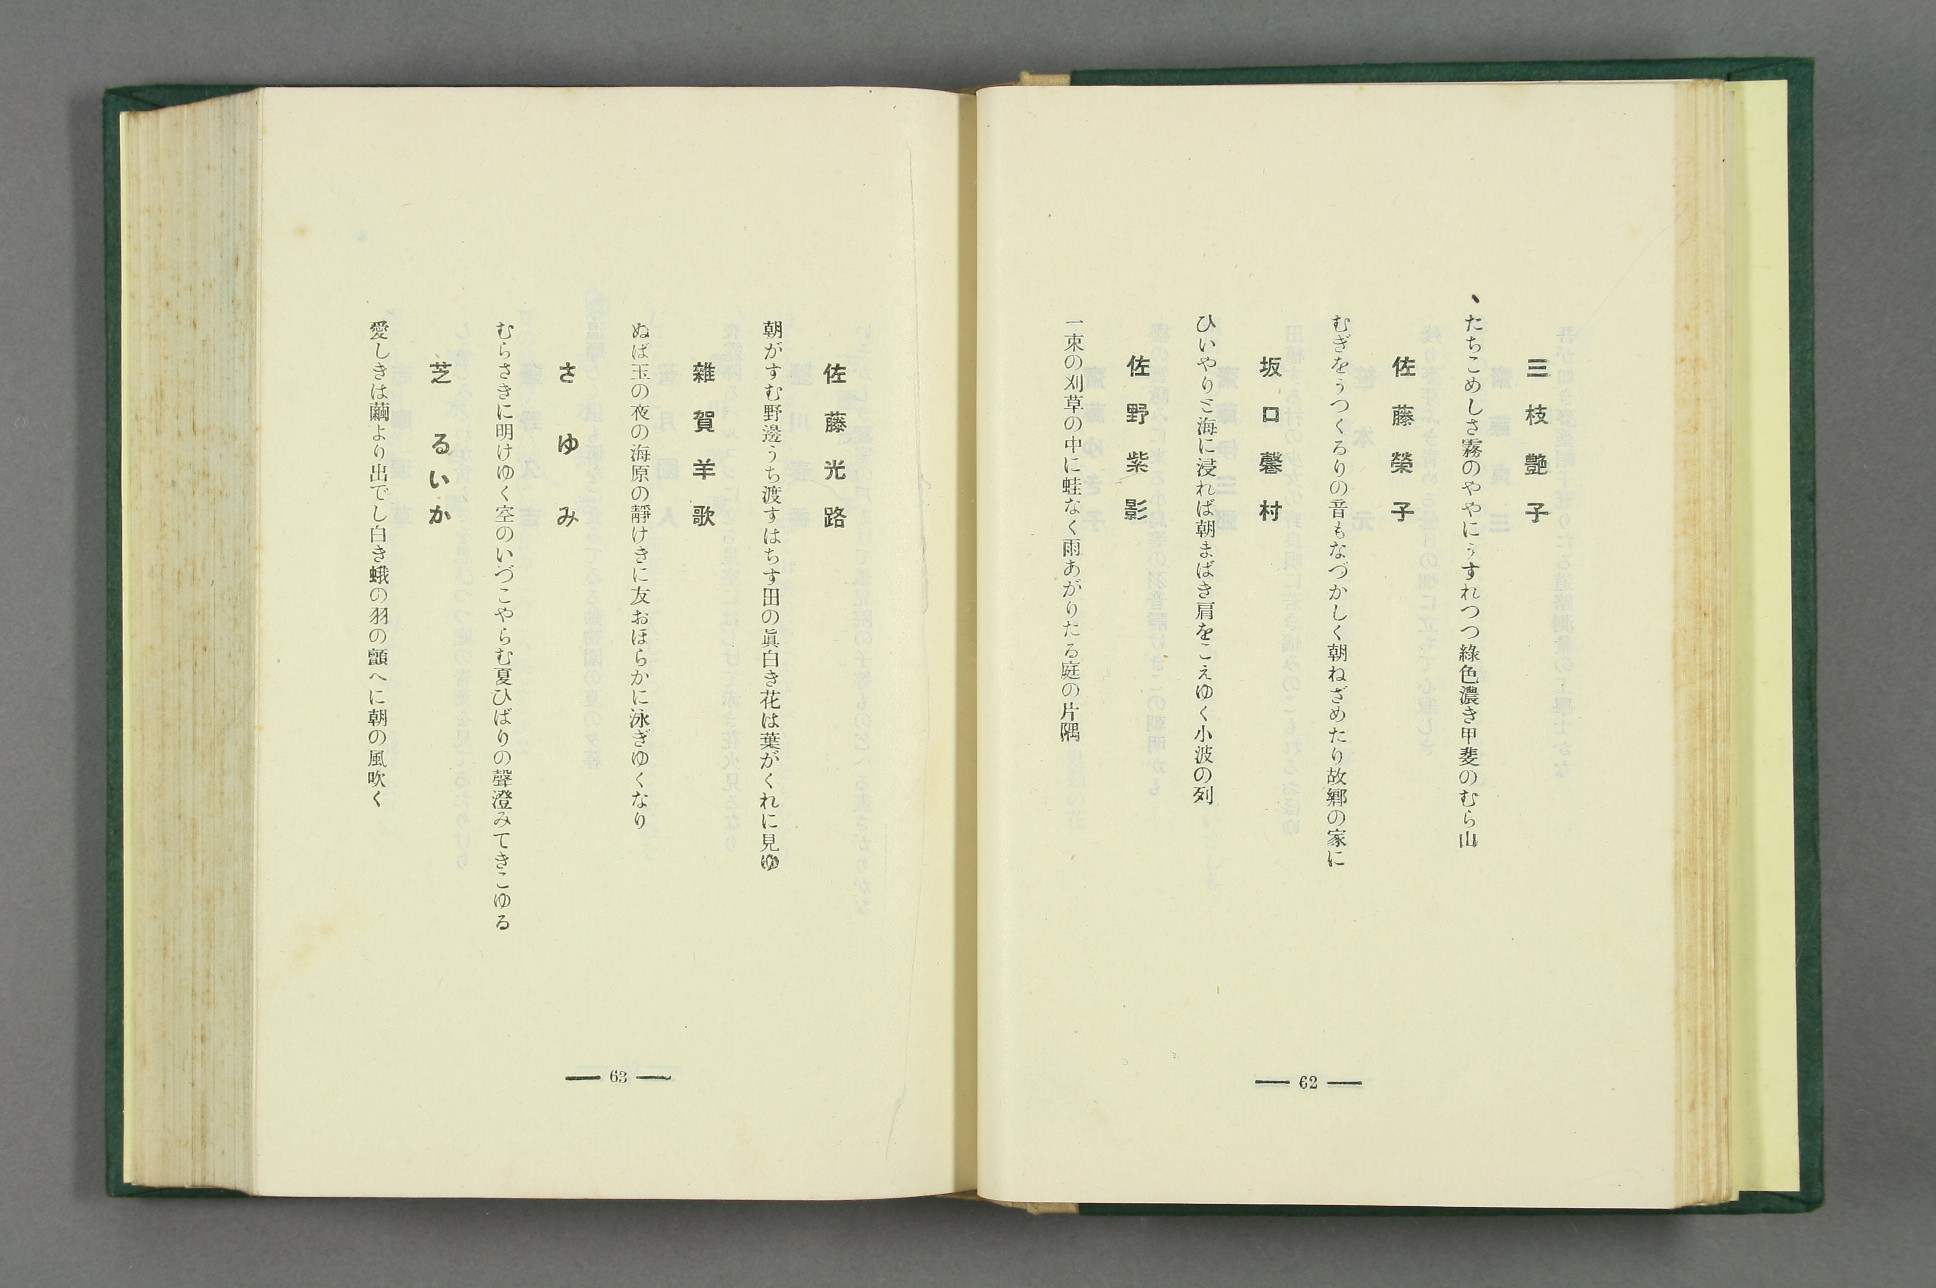 三枝艶子
たちこめしさ霧のややにうすれつつ綠色濃き甲斐のむら山
佐藤榮子
むぎをうつくるりの音もなづかしく朝ねざめたり故郷の家に
坂口馨村
ひいやりと海に浸れば朝まばき肩をこえゆく小波の列
佐野紫影
一束の刈草の中に蛙なく雨あがりたる庭の片隅
— 62 —
佐藤光路
朝がすむ野邊うち渡すはちす田の眞白き花は葉がくれに見ゆ
雜賀羊歌
ぬば玉の夜の海原の靜けきに友おほらかに泳ぎゆくなり
さゆみ
むらさきに明けゆく空のいづこやらむ夏ひばりの聲澄みてきこゆる
芝るいか
愛しきは繭より出でし白き蛾の羽の顫へに朝の風吹く
— 63 —